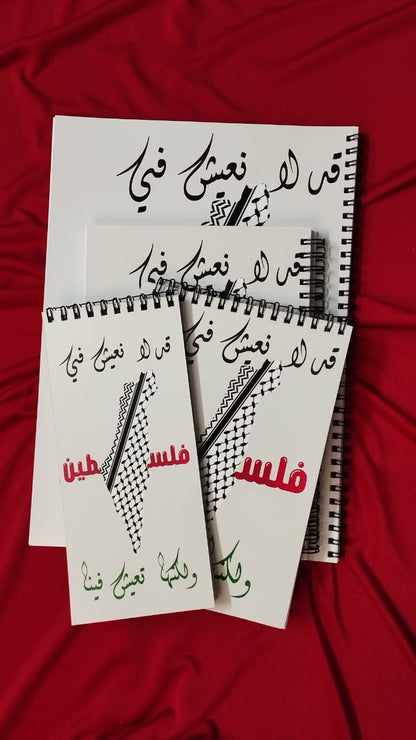 قد لا نعيش في
قد لا نعيش في
قد لا نعيش في
فلسطين
ولكنها تعيش فينا
قد لا نعيش في
فلسـ